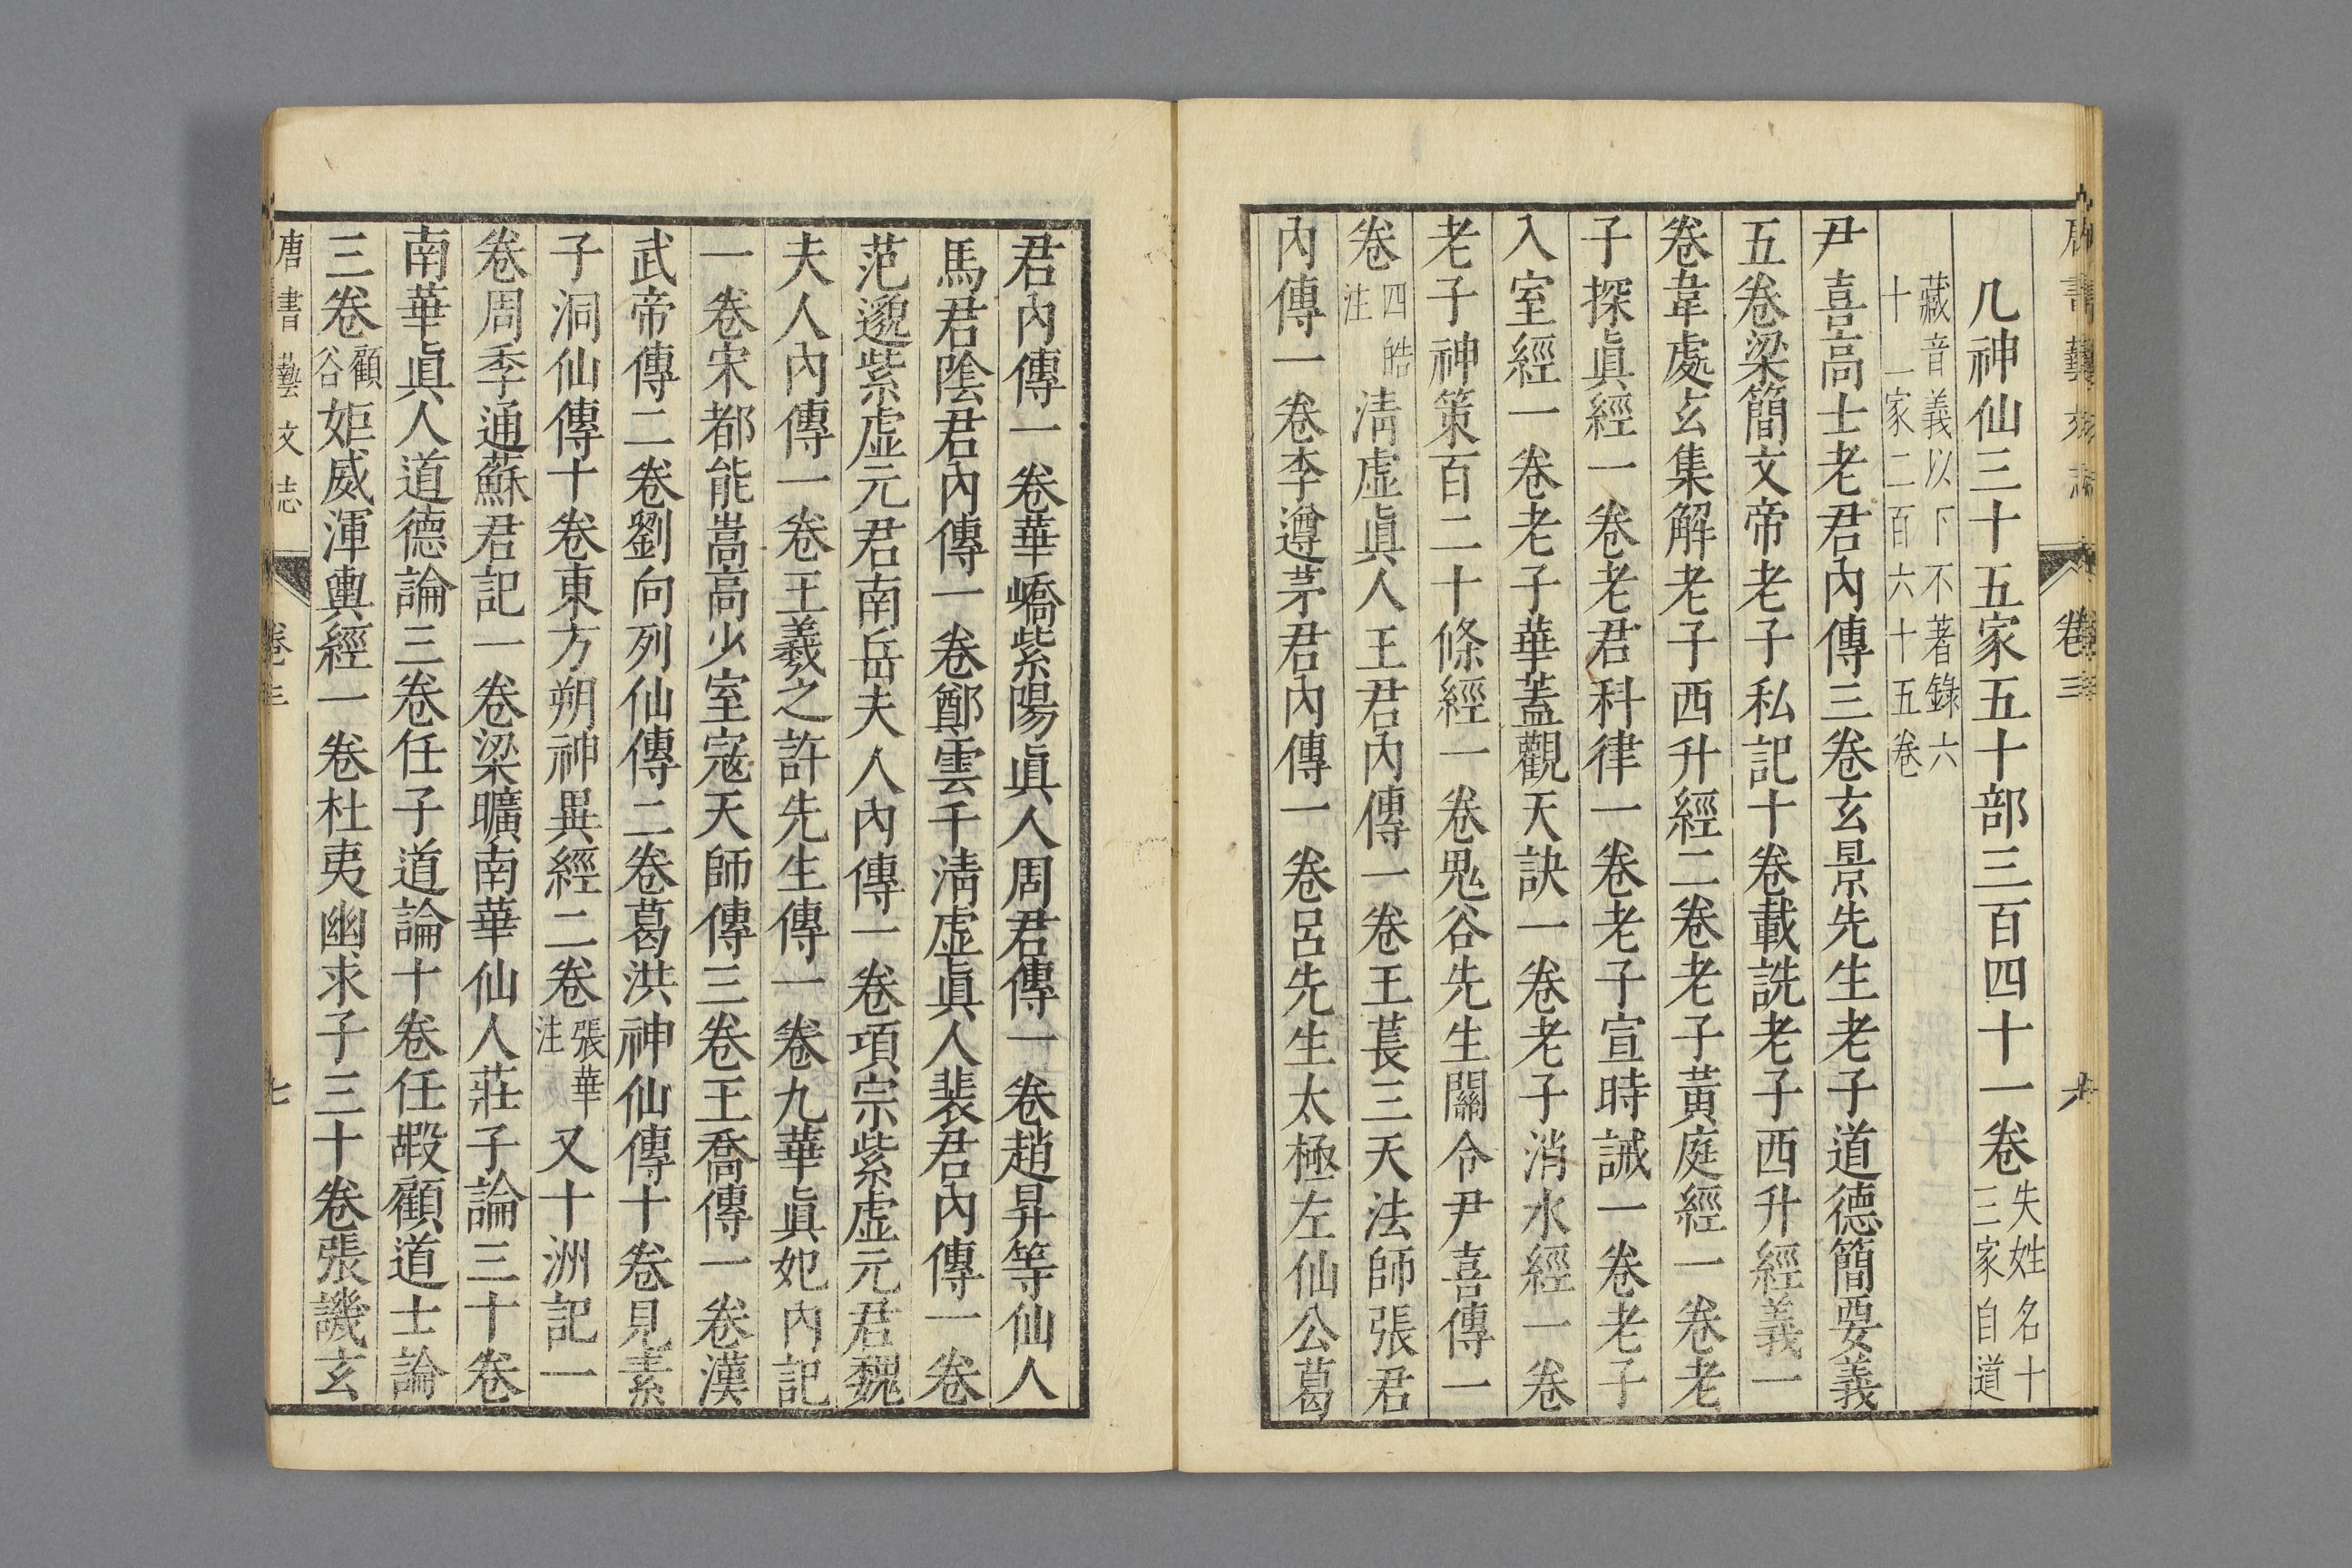 唐書藝文志 卷三 六
凡神仙三十五家五十部三百四十一卷失姓名十三家自道
藏音義以下不著錄六十一家二百六十五卷
尹喜高士老君內傳三卷玄景先生老子道德簡要義
五卷梁簡文帝老子私記十卷載詵老子西升經義一
卷韋處玄集解老子西升經二卷老子黃庭經一卷老
子探眞經一卷老君科律一卷老子宣時誡一卷老子
入室經一卷老子華蓋觀天訣一卷老子消水經一卷
老子神策百二十條經一卷鬼谷先生關令尹喜傳一
卷四皓注清虛眞人王君內傳一卷王萇三天法師張君
內傳一卷李遵茅君內傳一卷呂先生太極左仙公葛
君內傳一卷華嶠紫陽眞人周君傳一卷趙昇等仙人
馬君陰君內傳一卷鄭雲千清虛眞人裴君內傳一卷
范邈紫虛元君南岳夫人內傳一卷項宗紫虛元君魏
夫人內傳一卷王羲之許先生傳一卷九華眞妃內記
一卷宋都能嵩高少室寇天師傳三卷王喬傳一卷漢
武帝傳二卷劉向列仙傳二卷葛洪神仙傳十卷見素
子洞仙傳十卷東方朔神異經二卷張華注又十洲記一
卷周季通蘇君記一卷梁曠南華仙人莊子論三十卷
南華眞人道德論三卷任子道論十卷任嘏顧道士論
三卷顧谷姖威渾輿經一卷杜夷幽求子三十卷張譏玄
唐書藝文志 卷三 七